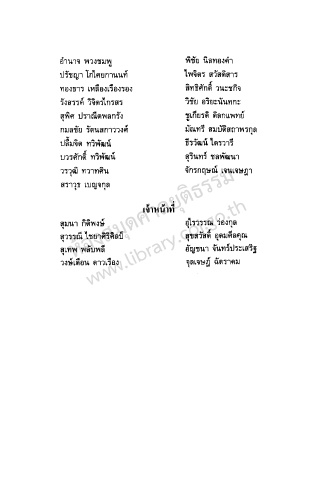 อำนาจ พวงชมพู
ปรัชญา โกไศยกานนท์
ทองธาร เหลืองเรืองรอง
รังสรรค์ วิจิตรไกรสร
สุพิศ ปราณีตพลกรัง
กมลชัย รัตนสกาววงศ์
ปลื้มจิต ทวิพัฒน์
บวรศักดิ์ ทวิพัฒน์
วรวุฒิ ทวาทศิน
สราวุธ เบญจกุล
พิชัย นิลทองคำ
ไพจิตร สวัสดิสาร
สิทธิศักดิ์ วนะชกิจ
วิชัย อริยะนันทกะ
ชูเกียรติ ดิลกแพทย์
มัณทรี สมบัติสถาพรกุล
ธีรวัฒน์ ไตรวารี
สุรินทร์ ชลพัฒนา
จักรกฤษณ์ เจนเจษฎา
เจ้าหน้าที่
สุมนา กิติพงษ์
สุวรรณี ไชยาศิริศิลป์
สุเทพ พลับพลี
วงษ์เดือน ดาวเรือง
อุไรวรรณ ร่องกุล
สุขสวัสดิ์ อุดมดีลคุณ
อัญชนา จันทร์ประเสริฐ
จุลเจษฎ์ ฉัตราคม
www.library.coj.go.th